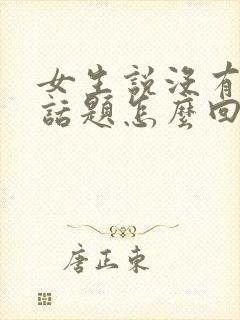 女生說沒有
話題怎麼回
唐正東